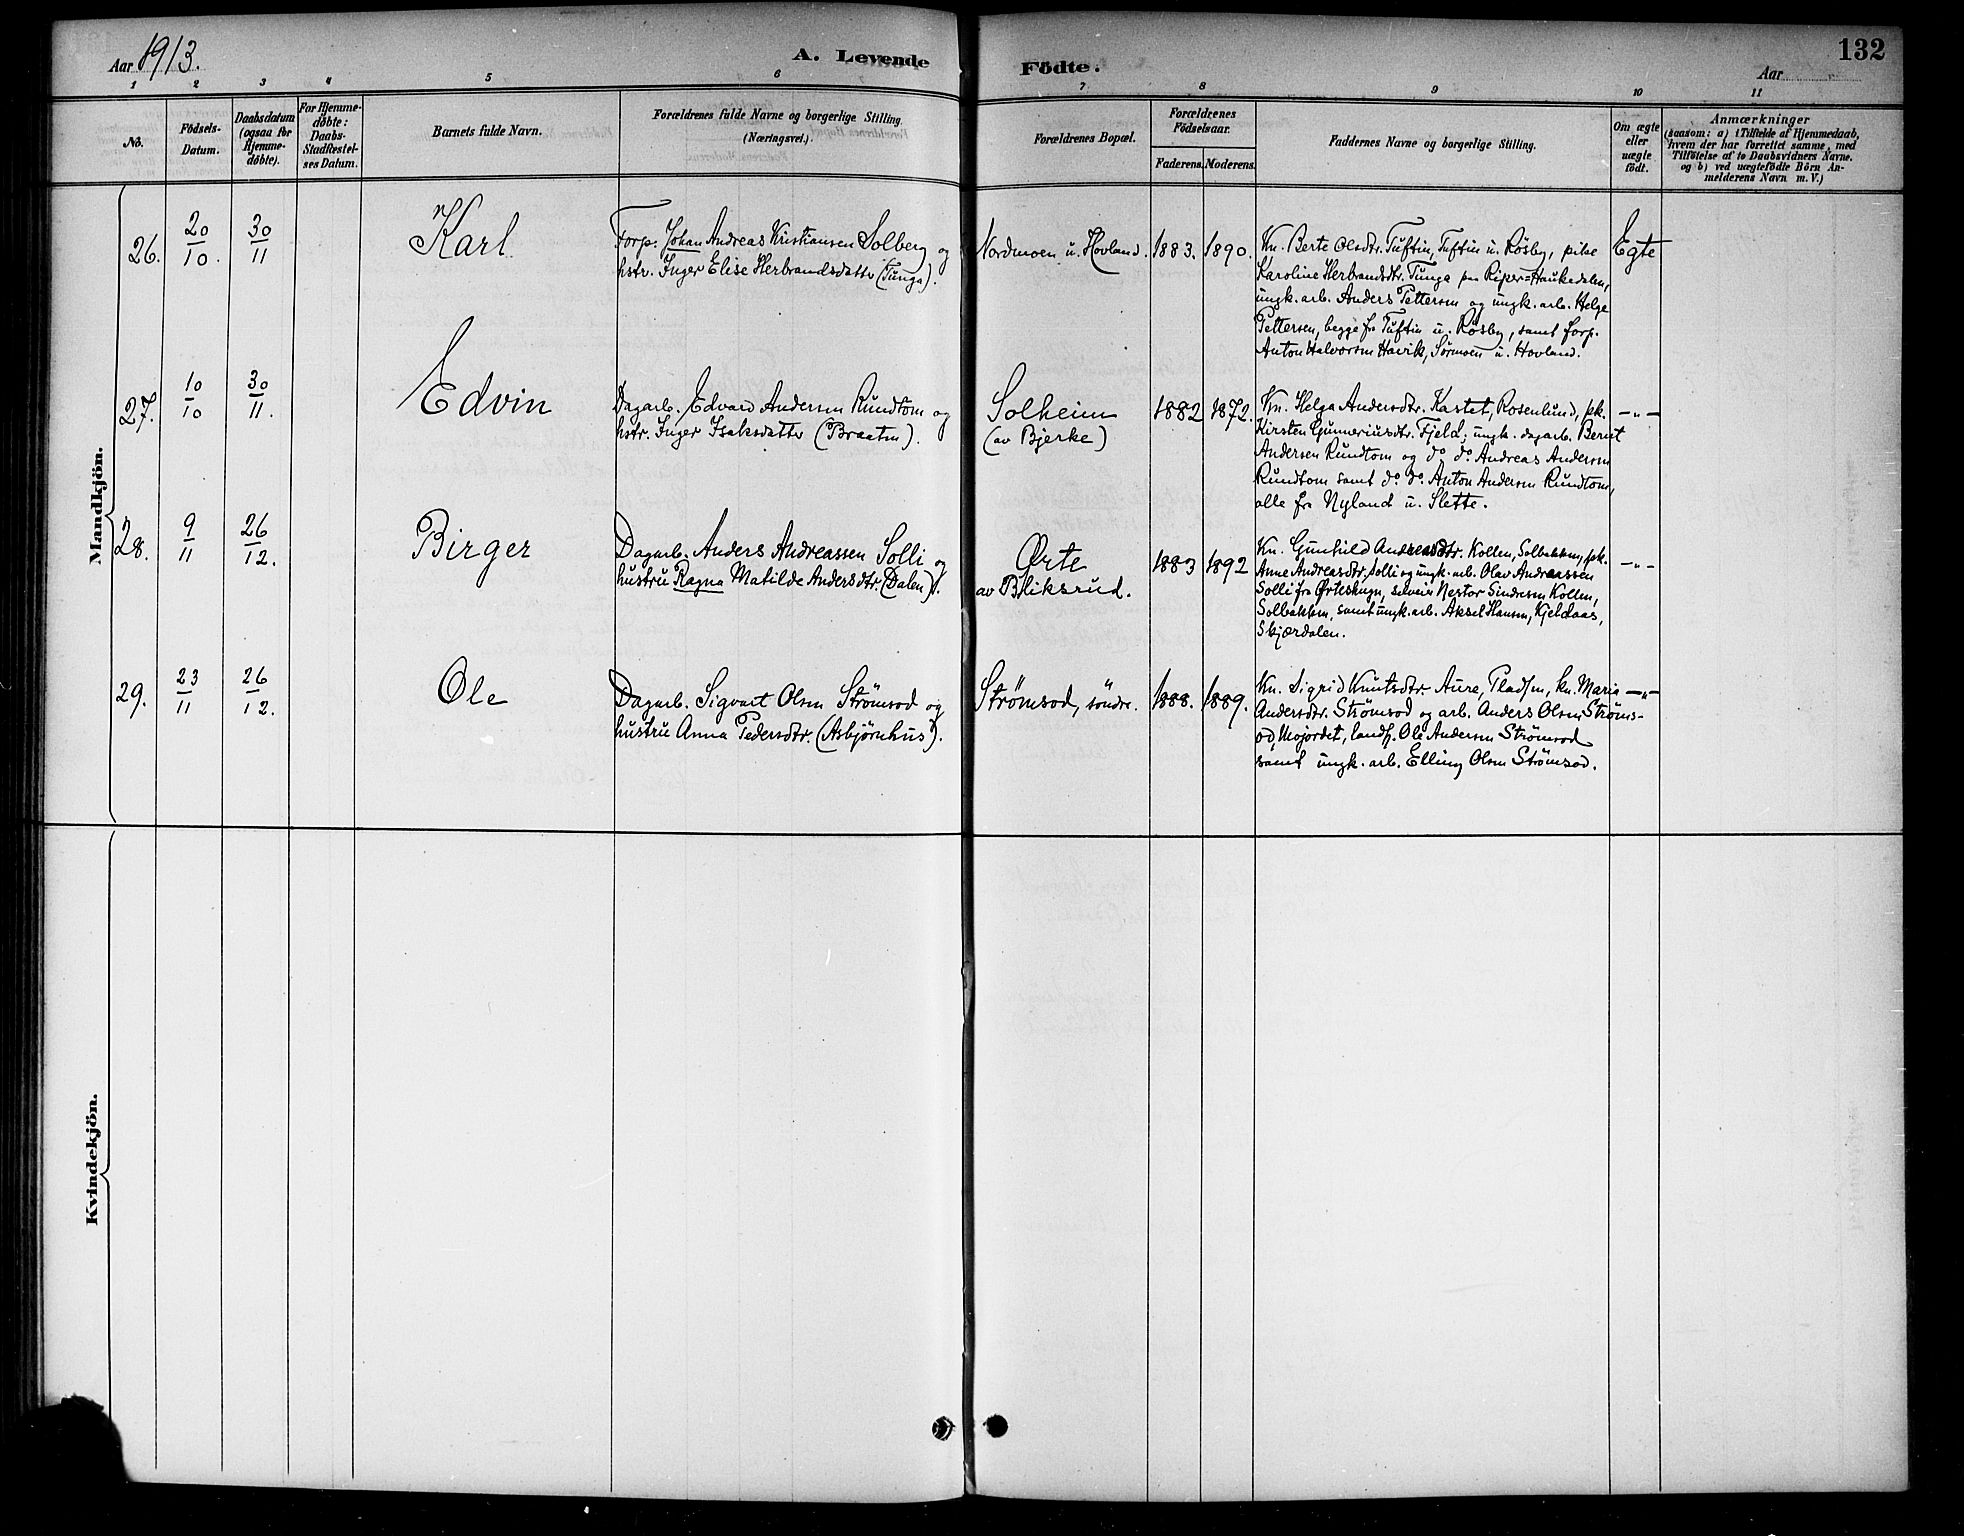 Aar 1913.
A. Levende
Födte.
Aar
132
1 2 3 4 5 6 7 8 9 10 11
No.
Födsels-
Datum.
Daabsdatum
(ogsaa for
Hjemme-
döbte).
For Hjemme-
döbte:
Daabs-
Stadfæstel-
ses Datum.
Barnets fulde Navn.
Forældrenes fulde Navne og borgerlige Stilling.
(Næringsvei.)
Forældrenes Bopæl.
Forældrenes
Födselsaar.
Faderens. Moderens.
Faddernes Navne og borgerlige Stilling.
Om ægte
eller
uægte
födt.
Anmærkninger
(saasom: a) i Tilfælde af Hjemmedaab,
hvem der har forrettet samme, med
Tilföielse af to Daabsvidners Navne.
og b) ved uægtefödte Börn An-
melderens Navn m. V.)
Mandkjön.
26. 20/10. 30/11 Karl
Forp. Johan Andreas Kristiansen Solberg og
hstr. Inger Elise Herbrandsdatter (Tunga).
Nordmoen u. Hovland. 1883. 1890.
Kn. Berte Olsdtr. Tuftin, Tuftin u. Rösby, pike
Karoline Herbrandsdtr. Tunga paa Riper=Haukedalen,
ungk. arb. Anders Pettersen og ungk. arb. Helge
Pettersen, begge fr. Tuftin u. Rösby, samt forp.
Anton Halvorsen Havik, Sörmoen u. Hovland.
Egte
27. 10/10 30/11. Edvin
Dagarb. Edvard Andersen Rundtom og
hstr. Inger Isaksdatter (Braaten).
Solheim
(av Bjerke)
1882 1872.
Kn. Helga Andersdtr. Kastet, Rosenlund, pk.
Kirsten Gunneriusdtr. Fjeld, ungk. dagarb. Bernt
Andersen Rundtom og do do Andreas Andersen
Rundtom samt do. do. Anton Andersen Rundtom,
alle fr. Nyland u. Slette.
—"—
28. 9/11 26/12. Birger
Dagarb. Anders Andreassen Solli og
hustru Ragna Matilde Andersdtr. (Dalen).
Ørte
av Bliksrud.
1883 1892
Kn. Gunhild Andreasdtr. Kollen, Solbakken, pk.
Anne Andreasdtr. Solli og ungk. arb. Olav Andreassen
Solli fra Ørteskogen, selveier Nestor Sindresen Kollen,
Solbakken, samt ungk. arb. Aksel Hansen, Kjeldaas,
Skjærdalen.
—"—
29. 23/11 26/12. Ole
Dagarb. Sigvart Olsen Strömsod og
hustru Anna Pedersdtr. (Asbjørnhus).
Strömsod, söndre. 1888. 1889.
Kn. Sigrid Knutsdtr. Aure, Pladsen, kn. Maria
Andersdtr. Strömsod og arb. Anders Olsen Ströms-
od, Mojordet, landh. Ole Andersen Strömsod
samt ungk. arb. Elling Olsen Strömsod.
—"—
Kvindekjön.